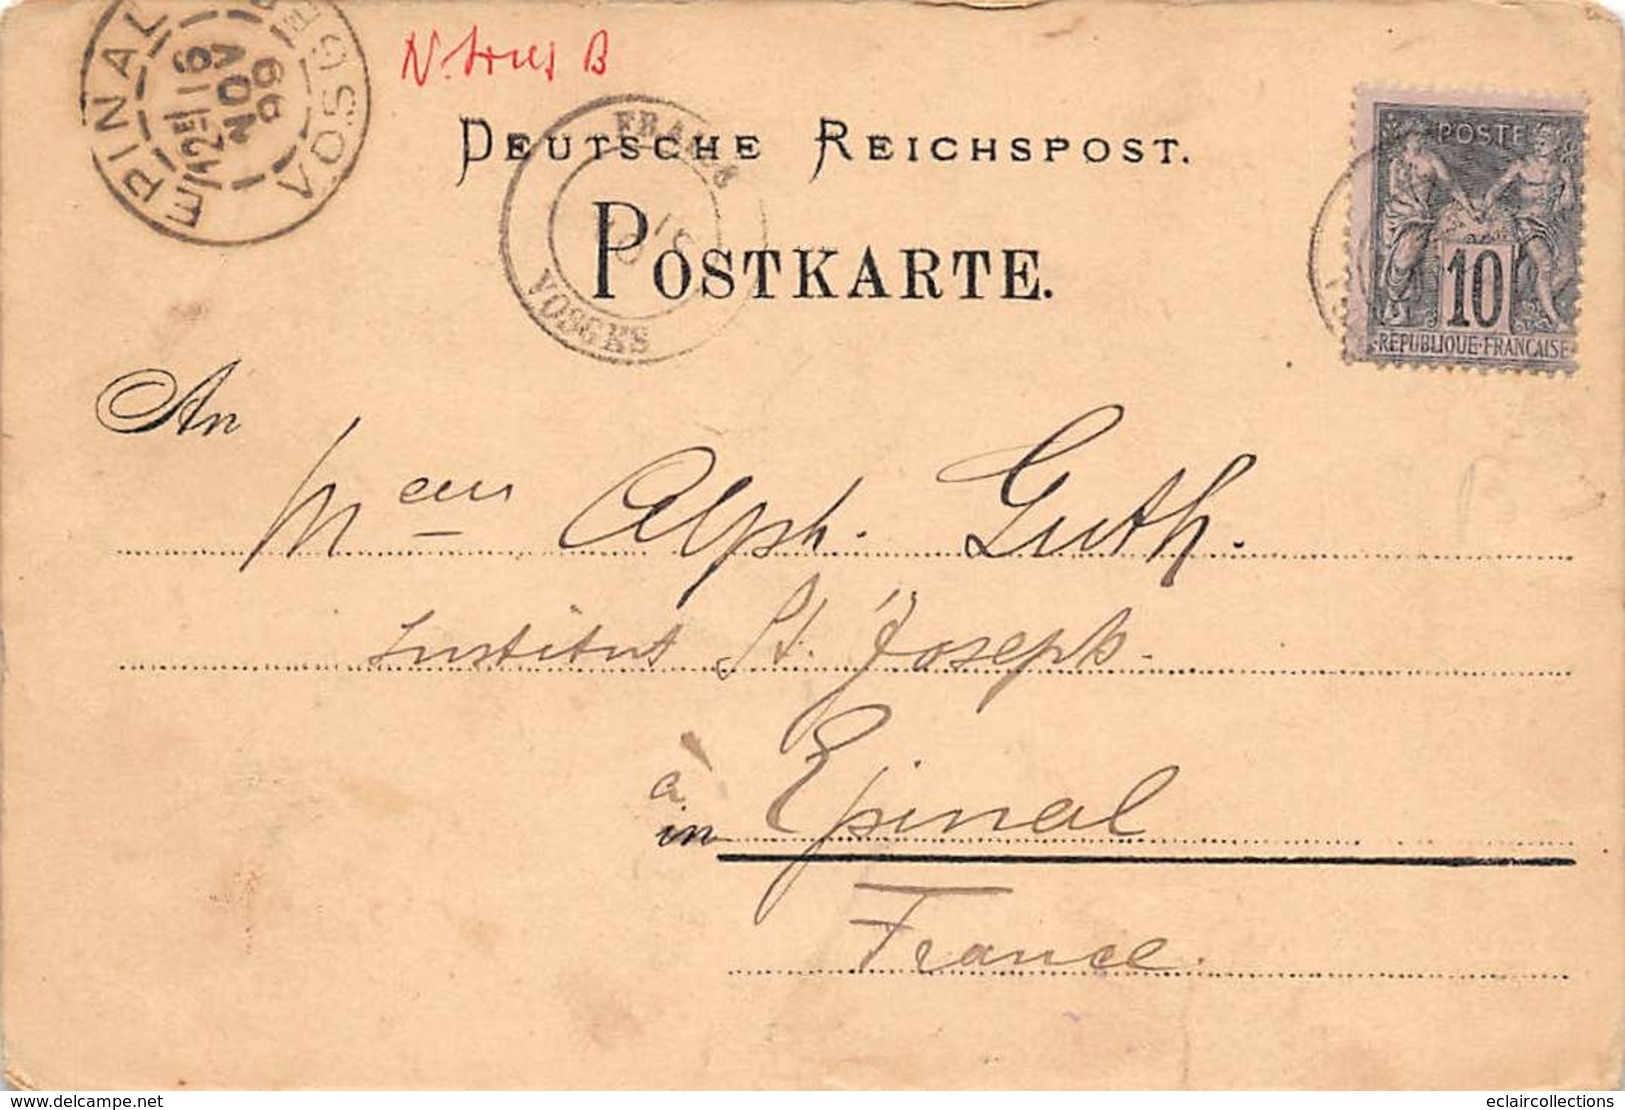 EPINAL
12E 16
NOV
99
VOSGES
DEUTSCHE REICHSPOST.
POSTKARTE.
VOSGES
POSTE
10
REPUBLIQUE FRANCAISE
An
Alph. Guth.
Institut St. Joseph
à
in Epinal
France.
www.delcampe.net
eclaircollections